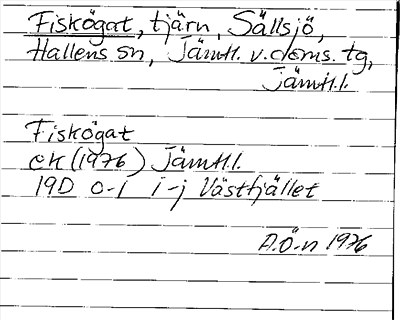 Fiskögat, tjärn, Sällsjö,
Hallens sn, Jämtl. v. doms. tg,
Jämtl.l.
Fiskögat
ek (1976) Jämtl.l.
19D 0-1 i-j Västfjället
A.Ö-n 1976